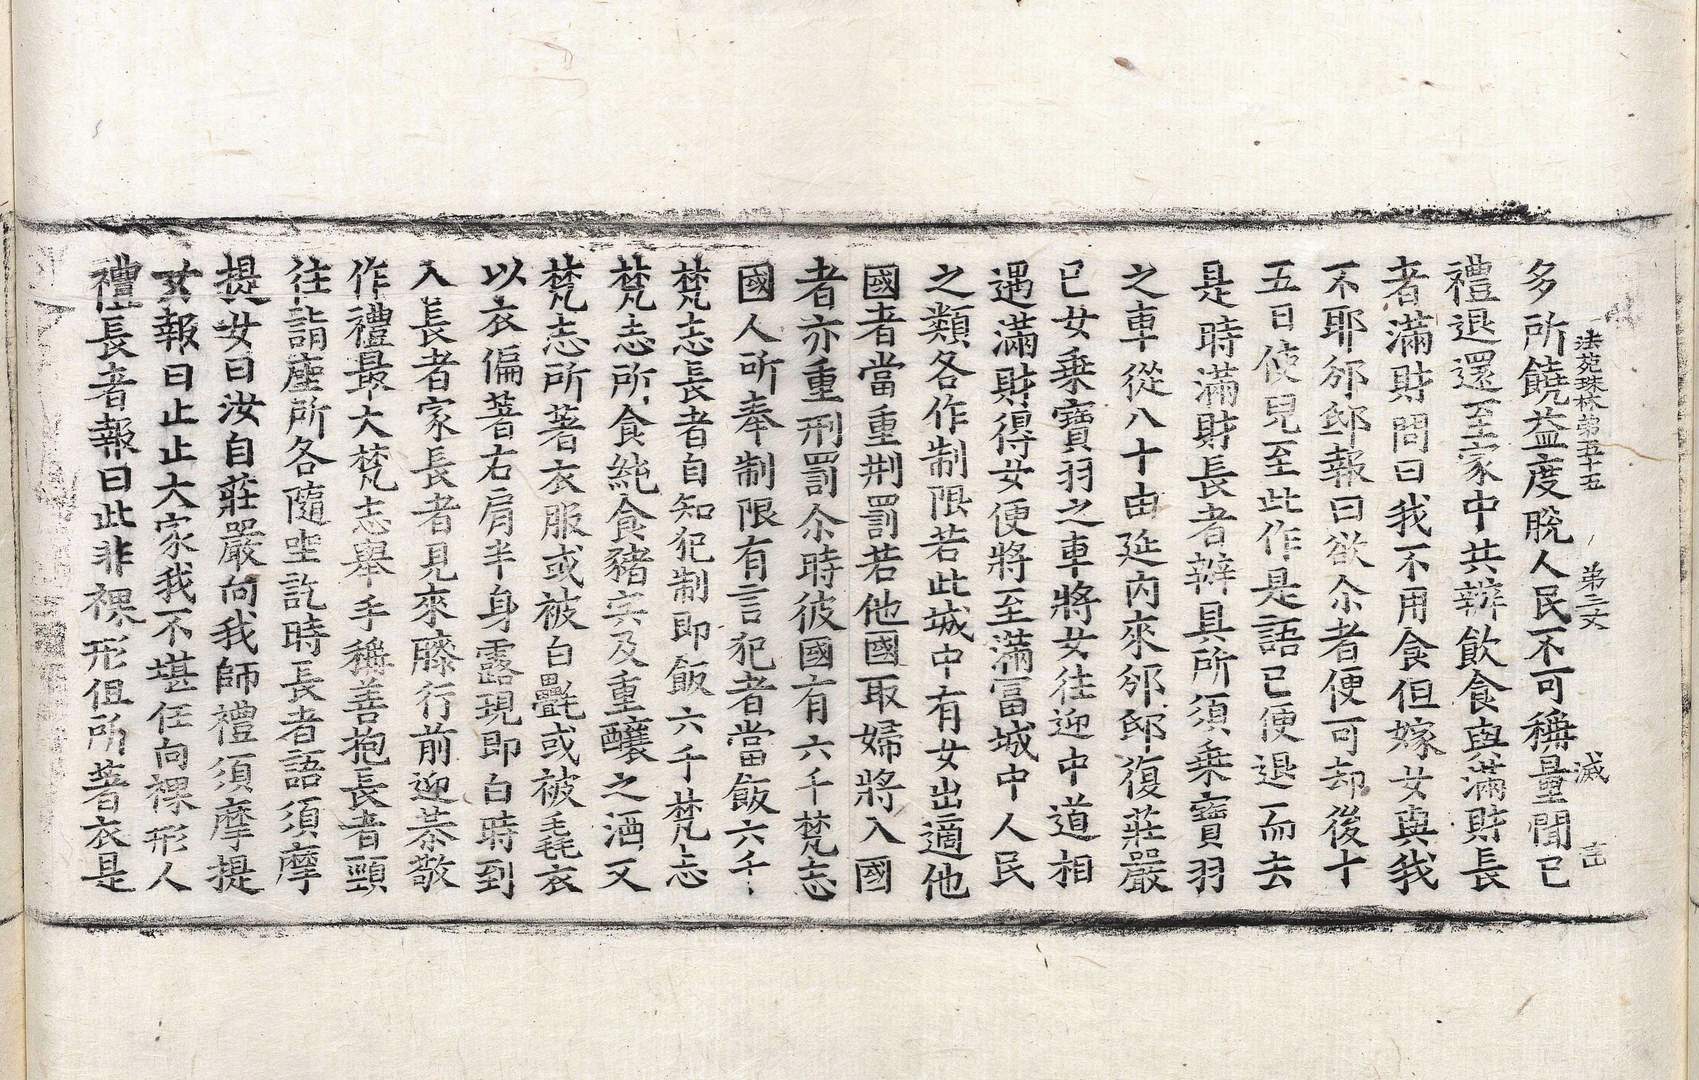 法苑珠林第五十五 第二丈 滅 言
多所饒益度脫人民不可稱量聞已
禮退還至家中共辦飲食與滿財長
者滿財問曰我不用食但嫁女與我
不耶邠邸報曰欲尒者便可却後十
五日使兒至此作是語已便退而去
是時滿財長者辦具所須乗寶羽
之車從八十由延內來邠邸復莊嚴
已女乗寶羽之車將女往迎中道相
遇滿財得女便將至滿冨城中人民
之類各作制限若此城中有女出適他
國者當重刑罰若他國取婦將入國
者亦重刑罰尒時彼國有六千梵志
國人所奉制限有言犯者當飯六千
梵志長者自知犯制即飯六千梵志
梵志所食純食豬宍及重釀之酒又
梵志所著衣服或被白㲲或被毳衣
以衣偏著右肩半身露現即白時到
入長者家長者見來膝行前迎恭敬
作禮最大梵志舉手稱善抱長者頸
往詣座所各隨坐訖時長者語須摩
提女曰汝自莊嚴向我師禮須摩提
女報曰止止大家我不堪任向裸形人
禮長者報曰此非裸形但所著衣是